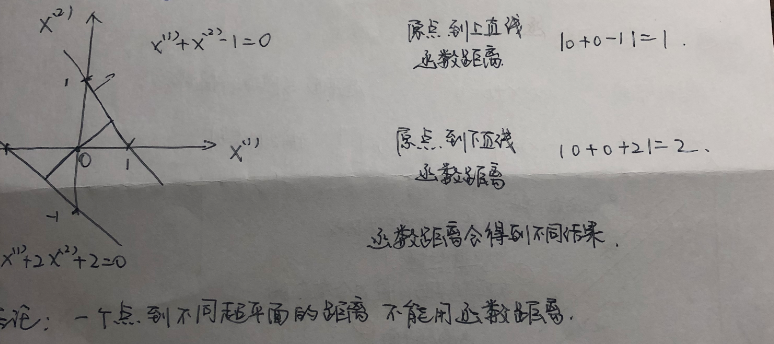 x⁽²⁾
x⁽¹⁾+x⁽²⁾-1=0
原点到上直线
函数距离
|0+0-1|=1.
1
0
1
x⁽¹⁾
原点到下直线
函数距离
|0+0+2|=2.
-1
函数距离会得到不同结果.
x⁽¹⁾+2x⁽²⁾+2=0
结论: 一个点到不同超平面的距离 不能用函数距离.